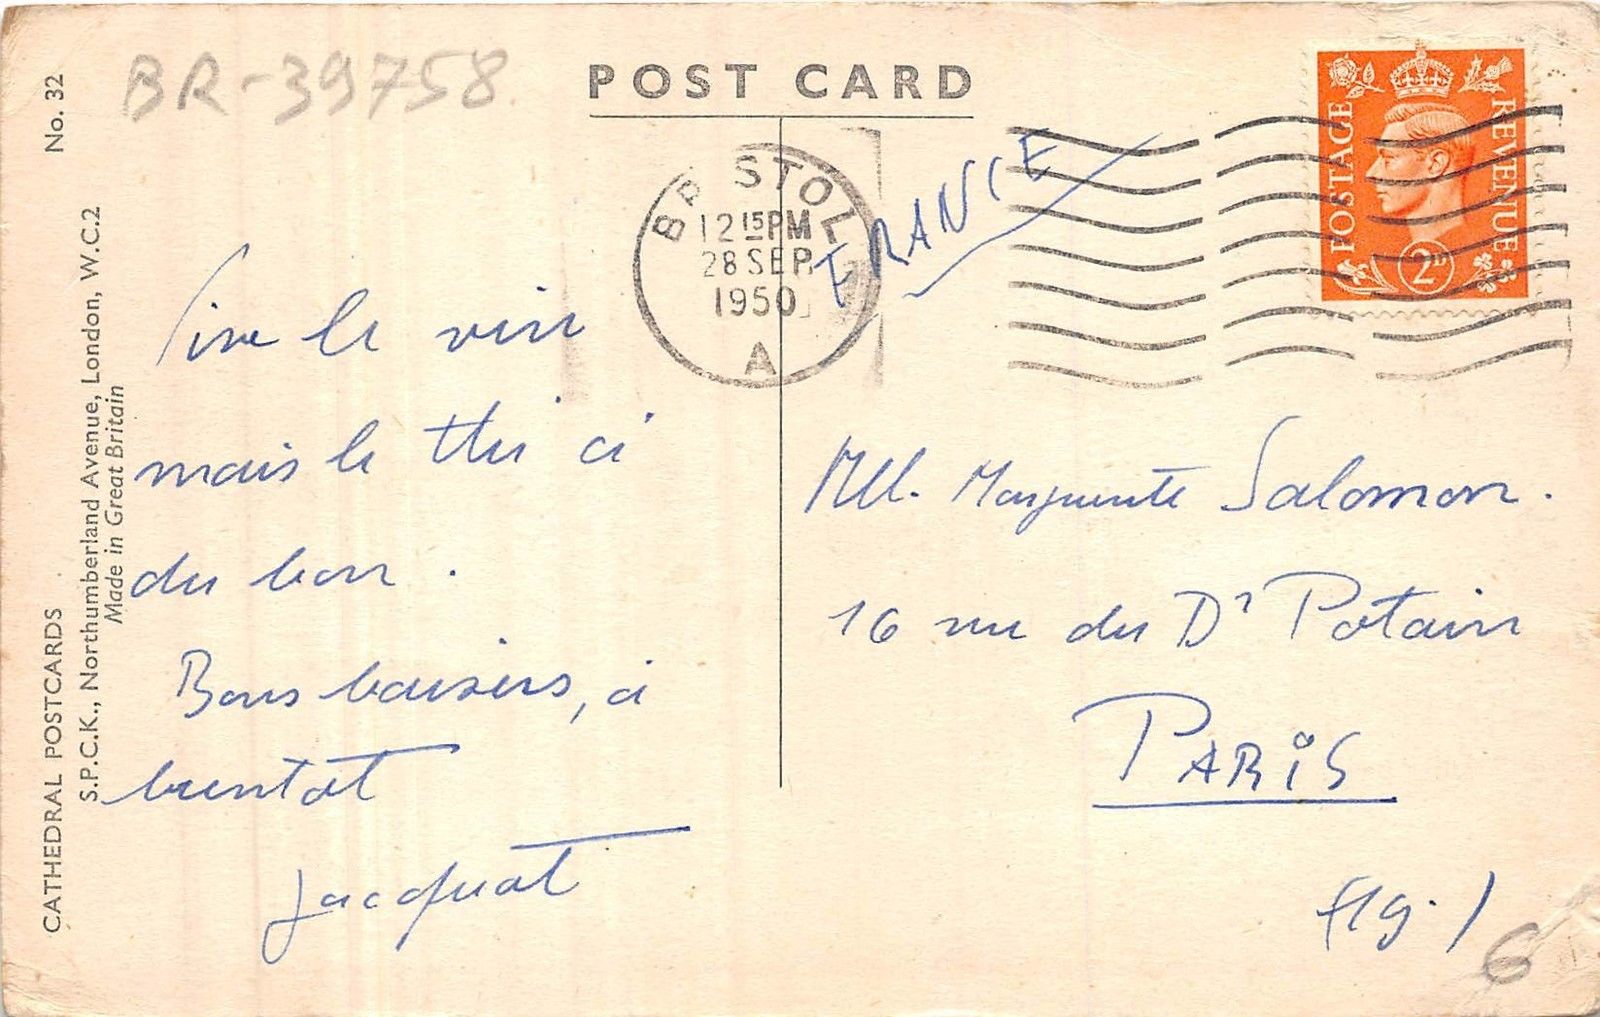 BR-39758
POST CARD
No. 32
CATHEDRAL POSTCARDS
S.P.C.K., Northumberland Avenue, London, W.C.2
Made in Great Britain
BRISTOL
12 15 PM
28 SEP
1950
A
FRANCE
POSTAGE
REVENUE
2D
Vive le vin
mais le thé ci
du bon.
Bons baisers, à
bientot
Jacquot
Mll. Marguerite Salomon.
16 rue du Dr Potain
PARIS
(19.)
6